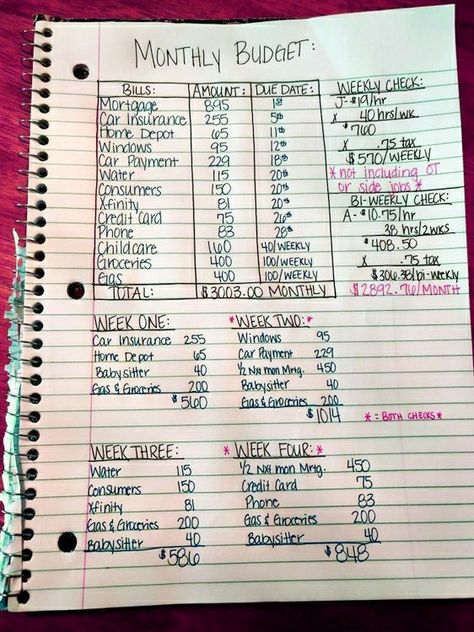 MONTHLY BUDGET:
BILLS: AMOUNT: DUE DATE:
Mortgage 895 1st
Car Insurance 255 5th
Home Depot 65 11th
Windows 95 12th
Car Payment 229 18th
Water 115 20th
Consumers 150 20th
Xfinity 81 20th
Credit Card 75 26th
Phone 83 28th
Childcare 160 40/WEEKLY
Groceries 400 100/WEEKLY
Gas 400 100/WEEKLY
TOTAL: $3003.00 MONTHLY
WEEKLY CHECK:
J- $19/hr
x 40 hrs/wk
$760
x .75 tax
$570/WEEKLY
*not including OT
or side jobs*
BI-WEEKLY CHECK:
A- $10.75/hr
38 hrs/2wks
$408.50
x .75 tax
$306.38/bi-weekly
$2892.76/MONTH
WEEK ONE:
Car Insurance 255
Home Depot 65
Babysitter 40
Gas & Groceries 200
$560
*WEEK TWO:*
Windows 95
Car Payment 229
1/2 Nxt mon Mrtg. 450
Babysitter 40
Gas & Groceries 200
$1014
*=BOTH CHECKS*
WEEK THREE:
Water 115
Consumers 150
Xfinity 81
Gas & Groceries 200
Babysitter 40
$586
*WEEK FOUR:*
1/2 Nxt mon Mrtg. 450
Credit Card 75
Phone 83
Gas & Groceries 200
Babysitter 40
$848